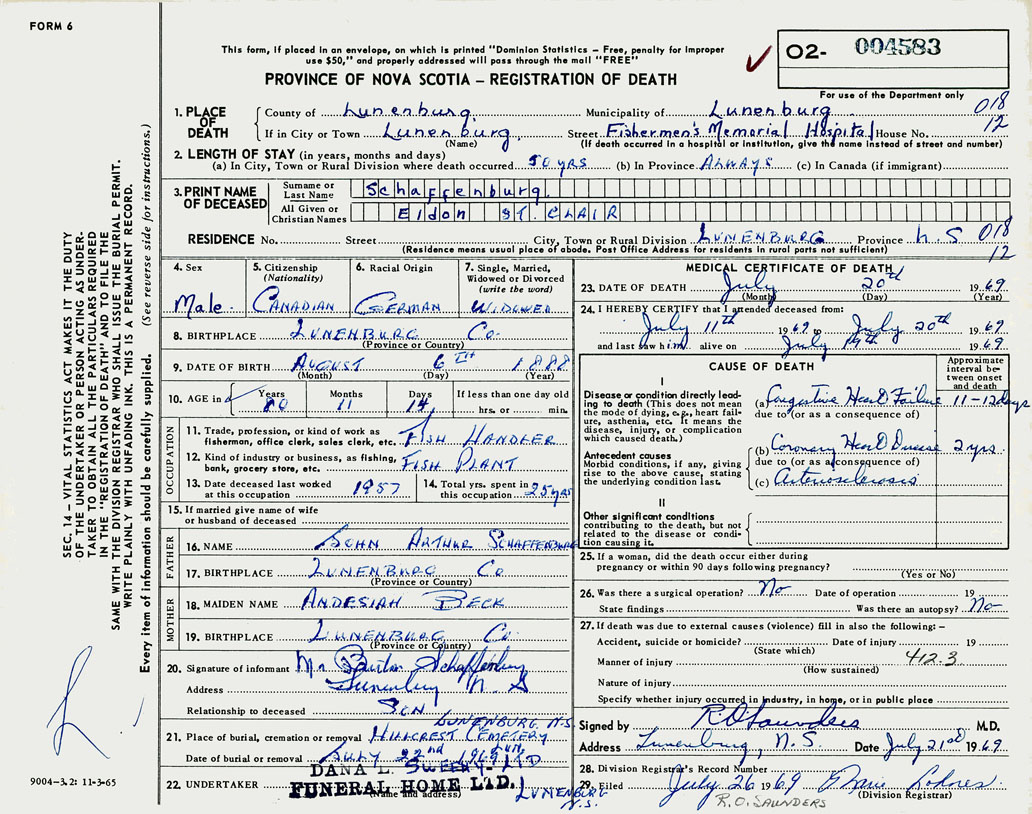 FORM 6
This form, if placed in an envelope, on which is printed "Dominion Statistics – Free, penalty for improper
use $50," and properly addressed will pass through the mail "FREE"
PROVINCE OF NOVA SCOTIA – REGISTRATION OF DEATH
O2- 004583
For use of the Department only
018
12
1. PLACE OF DEATH
County of Lunenburg. Municipality of Lunenburg
If in City or Town Lunenburg, Street Fishermen's Memorial Hospital House No.
(Name) (If death occurred in a hospital or institution, give the name instead of street and number)
2. LENGTH OF STAY (in years, months and days)
(a) In City, Town or Rural Division where death occurred. 50 yrs (b) In Province ALWAYS (c) In Canada (if immigrant)
3. PRINT NAME OF DECEASED
Surname or Last Name Schaffenburg.
All Given or Christian Names Eldon ST. CLAIR
RESIDENCE No. Street City, Town or Rural Division LUNENBURG Province N.S 018
(Residence means usual place of abode. Post Office Address for residents in rural parts not sufficient) 12
4. Sex Male.
5. Citizenship (Nationality) CANADIAN
6. Racial Origin GERMAN
7. Single, Married, Widowed or Divorced (write the word) WIDOWED
8. BIRTHPLACE LUNENBURG Co.
(Province or Country)
9. DATE OF BIRTH AUGUST 6TH 1888
(Month) (Day) (Year)
10. AGE in Years 80 Months 11 Days 14 If less than one day old hrs. or min.
OCCUPATION
11. Trade, profession, or kind of work as fisherman, office clerk, sales clerk, etc. FISH HANDLER
12. Kind of industry or business, as fishing, bank, grocery store, etc. FISH PLANT
13. Date deceased last worked at this occupation 1957
14. Total yrs. spent in this occupation 25 yrs
15. If married give name of wife or husband of deceased
FATHER
16. NAME JOHN ARTHUR SCHAFFENBURG
17. BIRTHPLACE LUNENBURG Co
(Province or Country)
MOTHER
18. MAIDEN NAME ANDESIAH BECK
19. BIRTHPLACE LUNENBURG Co.
(Province or Country)
20. Signature of informant Mr Schaffenburg
Address Lunenburg N. S
Relationship to deceased SON
LUNENBURG, N.S.
21. Place of burial, cremation or removal HILLCREST CEMETERY
Date of burial or removal JULY 22nd 1969
DANA L. SWEENY LTD
22. UNDERTAKER FUNERAL HOME LTD. LUNENBURG N.S.
(Name and address)
MEDICAL CERTIFICATE OF DEATH
23. DATE OF DEATH July 20th 1969
(Month) (Day) (Year)
24. I HEREBY CERTIFY that I attended deceased from:
July 11th 1969 to July 20th 1969
and last saw him alive on July 19th 1969
CAUSE OF DEATH
Approximate interval between onset and death
I
Disease or condition directly leading to death (This does not mean the mode of dying, e.g., heart failure, asthenia, etc. It means the disease, injury, or complication which caused death.)
(a) Congestive Heart Failure 11-12 days
due to (or as a consequence of)
Antecedent causes
Morbid conditions, if any, giving rise to the above cause, stating the underlying condition last.
(b) Coronary Heart Disease 2 yrs
due to (or as a consequence of)
(c) Arteriosclerosis
II
Other significant conditions contributing to the death, but not related to the disease or condition causing it.
25. If a woman, did the death occur either during pregnancy or within 90 days following pregnancy?
(Yes or No)
26. Was there a surgical operation? No Date of operation 19
State findings Was there an autopsy? No
27. If death was due to external causes (violence) fill in also the following: –
Accident, suicide or homicide? Date of injury 19
(State which)
Manner of injury 412.3
(How sustained)
Nature of injury
Specify whether injury occurred in industry, in home, or in public place
Signed by R O Saunders M.D.
Address Lunenburg, N.S. Date July 21st 1969
28. Division Registrar's Record Number
29. Filed July 26 1969
R.O. SAUNDERS (Division Registrar)
SEC. 14 – VITAL STATISTICS ACT MAKES IT THE DUTY
OF THE UNDERTAKER OR PERSON ACTING AS UNDER-
TAKER TO OBTAIN ALL THE PARTICULARS REQUIRED
IN THE "REGISTRATION OF DEATH" AND TO FILE THE
SAME WITH THE DIVISION REGISTRAR WHO SHALL ISSUE THE BURIAL PERMIT.
WRITE PLAINLY WITH UNFADING INK. THIS IS A PERMANENT RECORD.
Every item of information should be carefully supplied. (See reverse side for instructions.)
9004-3.2: 11-3-65